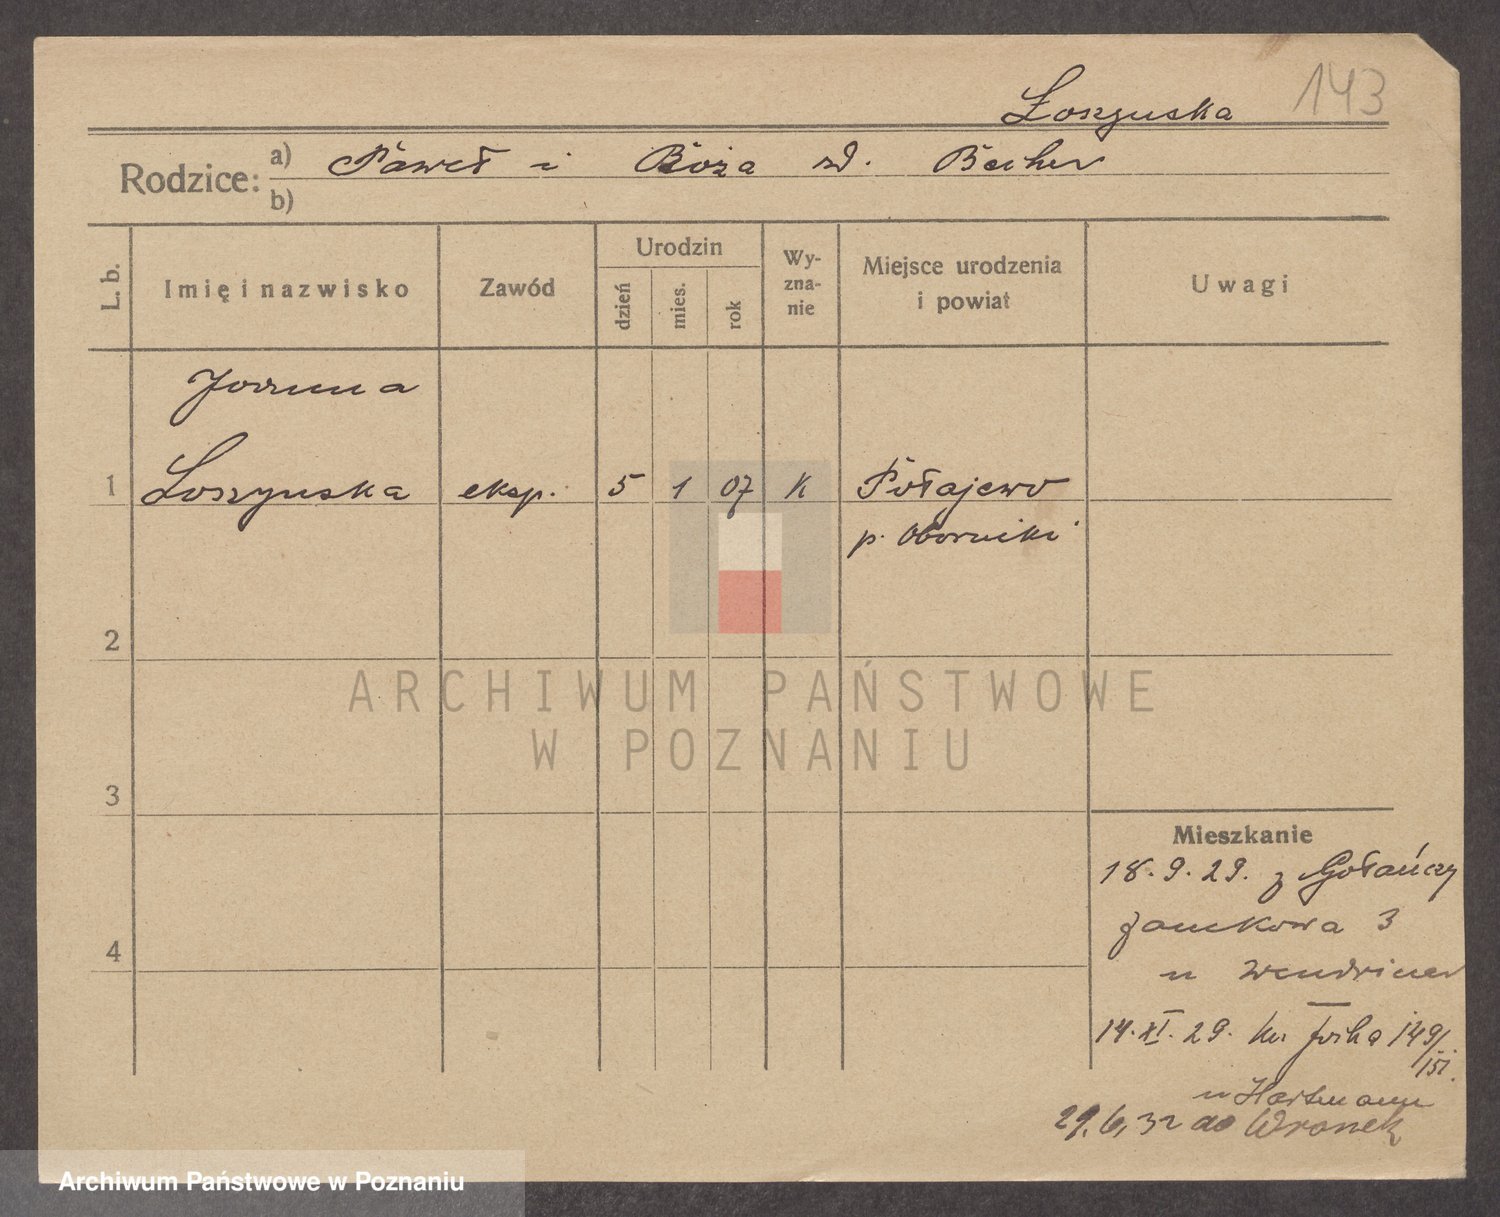 143
Łoszyńska
Rodzice: a) Paweł i Róża zd. Becher
b)
L. b. Imię i nazwisko Zawód Urodzin dzień mies. rok Wy-zna-nie Miejsce urodzenia i powiat Uwagi
Joanna
1 Łoszyńska eksp. 5 1 07 K Połajewo
p. Oborniki
2
3
4
Mieszkanie
18.9.29. z Gołańczy
Zamkowa 3
u Wendriner
14.XI.29. 149/151.
u Hartmann
29.6.32 do Wronek
ARCHIWUM PAŃSTWOWE
W POZNANIU
Archiwum Państwowe w Poznaniu